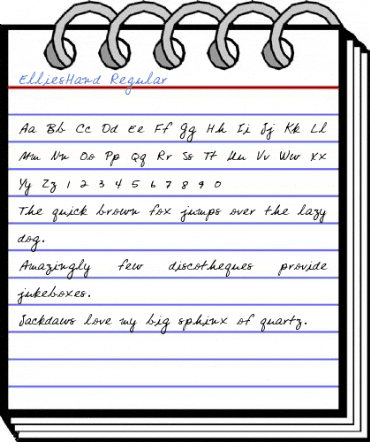 ElliesHand Regular
Aa Bb Cc Dd Ee Ff Gg Hh Ii Jj Kk Ll
Mm Nn Oo Pp Qq Rr Ss Tt Uu Vv Ww Xx
Yy Zz 1 2 3 4 5 6 7 8 9 0
The quick brown fox jumps over the lazy
dog.
Amazingly few discotheques provide
jukeboxes.
Jackdaws love my big sphinx of quartz.